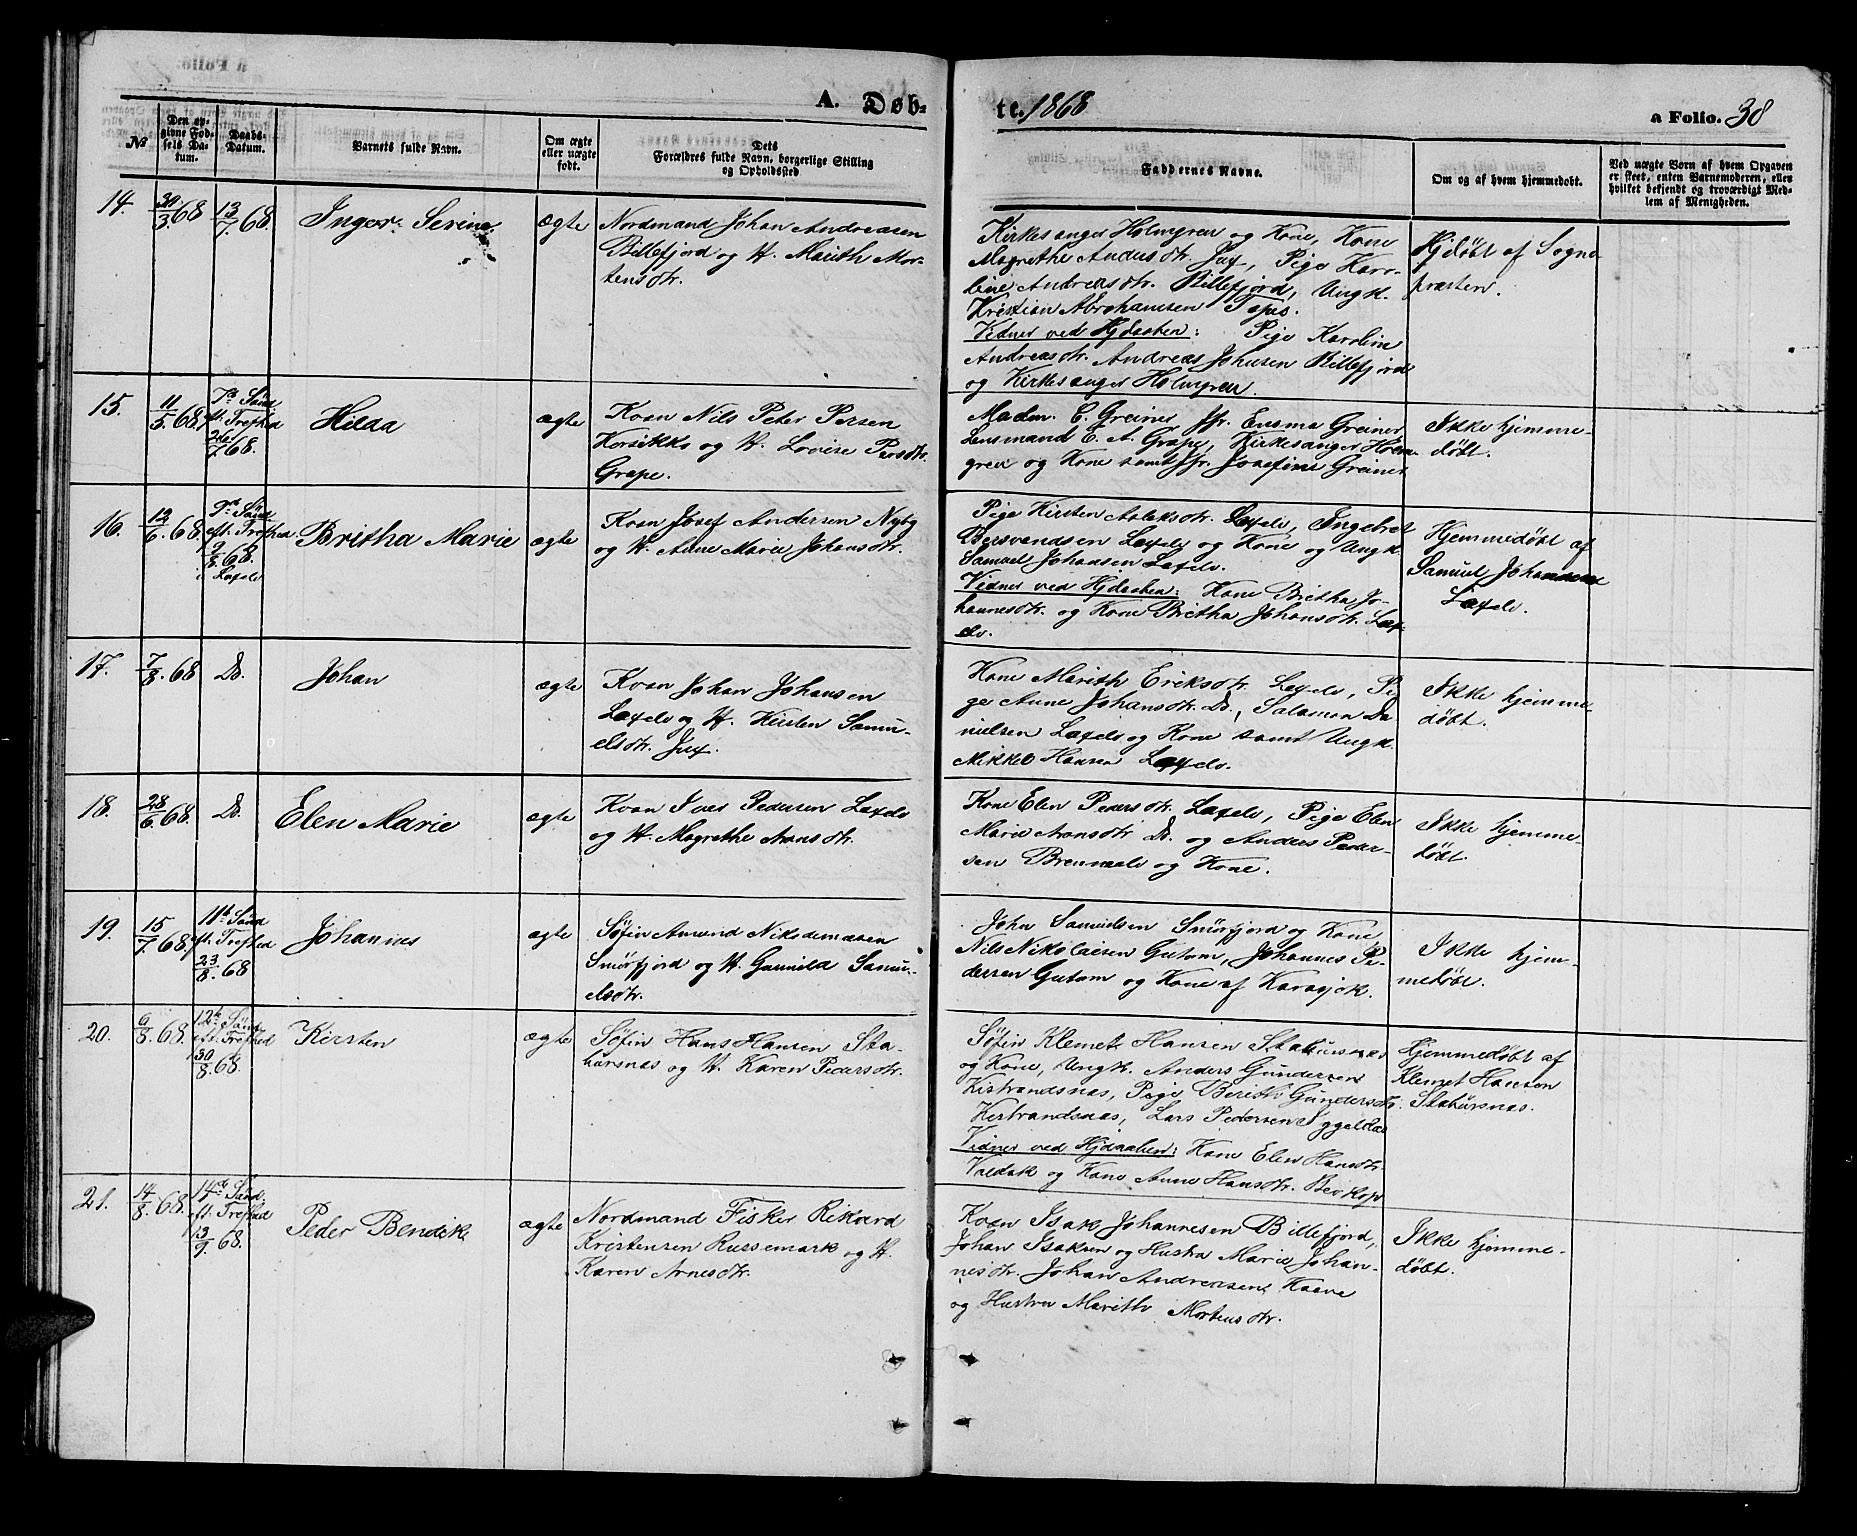 A. Døb-
te. 1868
a Folio. 38
№
Den op-
givne Fød-
sels Da-
tum.
Daabs-
Datum.
Barnets fulde Navn.
Om ægte
eller uægte
født.
Dets
Forældres fulde Navn, borgerlige Stilling
og Opholdssted
Faddernes Navne.
Om og af hvem hjemmedøbt.
Ved uægte Børn af hvem Opgaven
er skeet, enten Barnemoderen, eller
hvilket bekjendt og troværdigt Med-
lem af Menigheden.
14.
30/3 68
13/7 68.
Inger Serine
ægte
Nordmand Johan Andreasen
Billefjord og H. Marith Mor-
tensdtr.
Kirkesanger Holmgren og Kone, Kone
Magrethe Andersdtr. Jux, Pige Karo-
line Andreasdtr. Billefjord, Ungk.
Kristian Abrahamsen Topes.
Vidner ved Hjdaaben: Pige Karoline
Andreasdtr. Andreas Johnsen Billefjord
og Kirkesanger Holmgren.
Hjdøbt af Sogne-
præsten.
15.
11/5 68.
7de Sønd
eft. Trefhed
26/7 68.
Hilda
ægte
Kvæn Nils Peter Persen
Korsikko og H. Lovise Persdtr.
Grape.
Madm. C. Greiner, Jfr. Emma Greiner
Lensmand C. A. Grape, Kirkesanger Holm-
gren og Kone samt Jfr. Josefine Greiner.
Ikke hjemme-
døbt.
16.
12/6. 68.
9de Sønd
eft. Trefhed.
9/8. 68.
i Laxelv
Britha Marie
ægte
Kvæn Josef Andersen Nyby
og H. Anne Marie Johansdtr.
Pige Kirsten Asleksdtr. Laxelv, Ingebret
Bersvendsen Laxelv og Kone og Ungk.
Samuel Johansen Laxelv.
Vidner ved Hjdaaben: Kone Britha Jo-
hannesdtr. og Kone Britha Johansdtr. Lax-
elv.
Hjemmedøbt af
Samuel Johansen
Laxelv.
17.
7/8. 68
Do.
Johan
ægte
Kvæn Johan Johansen
Laxelv og H. Kirsten Samu-
elsdtr. Jux.
Kone Marith Eriksdtr. Laxelv, Pi-
ge Anne Johansdtr. Do., Salamon Da-
nielsen Laxelv og Kone samt Ungk.
Mikkel Hansen Laxelv.
Ikke hjemme-
døbt.
18.
28/6. 68.
Do.
Elen Marie
ægte
Kvæn Iver Pedersen Laxelv
og H. Magrethe Aronsdtr.
Kone Elen Pedersdtr. Laxelv, Pige Elen
Marie Aronsdtr Do. og Anders Peder-
sen Brennaelv og Kone.
Ikke hjemme-
døbt.
19.
15/7. 68.
11te Sønd
eft. Trefhed
23/8. 68.
Johannes
ægte
Søfin Amund Nikodemæsen
Smørfjord og H. Gunild Samu-
elsdtr.
John Samuelsen Smørfjord og Kone
Nils Nikolaisen Gutom, Johannes Pe-
dersen Gutom og Kone af Karasjok.
Ikke hjem-
medøbt.
20.
9/8. 68.
12te Sønd
eft. Trefhed
30/8. 68.
Kirsten
ægte
Søfin Hans Hansen Sta-
bursnæs og H. Karen Pedersdtr.
Søfin Klemet Hansen Stabursnæs
og Kone, Ungk. Anders Gundersen
Kistrandsnæs, Pige Berith Gundersdtr.
Kistrandsnæs, Lars Pedersen
Vidner ved Hjdaaben: Kone Elen Hansdtr.
Valdak og Kone Anne Hansdtr.
Hjemmedøbt af
Klemet Hansen
Stabursnæs.
21.
14/8. 68.
14de Sønd.
eft. Trefhed
13/9. 68.
Peder Bendik
ægte
Nordmand Fisker Rikard
Kristensen Russemark og H.
Karen Arnesdtr.
Kvæn Isak Johannesen Billefjord,
Johan Isaksen og Hustru Marie Johan-
nesdtr. Johan Andreasen
og Hustru Marith Mortensdtr.
Ikke hjemme-
døbt.